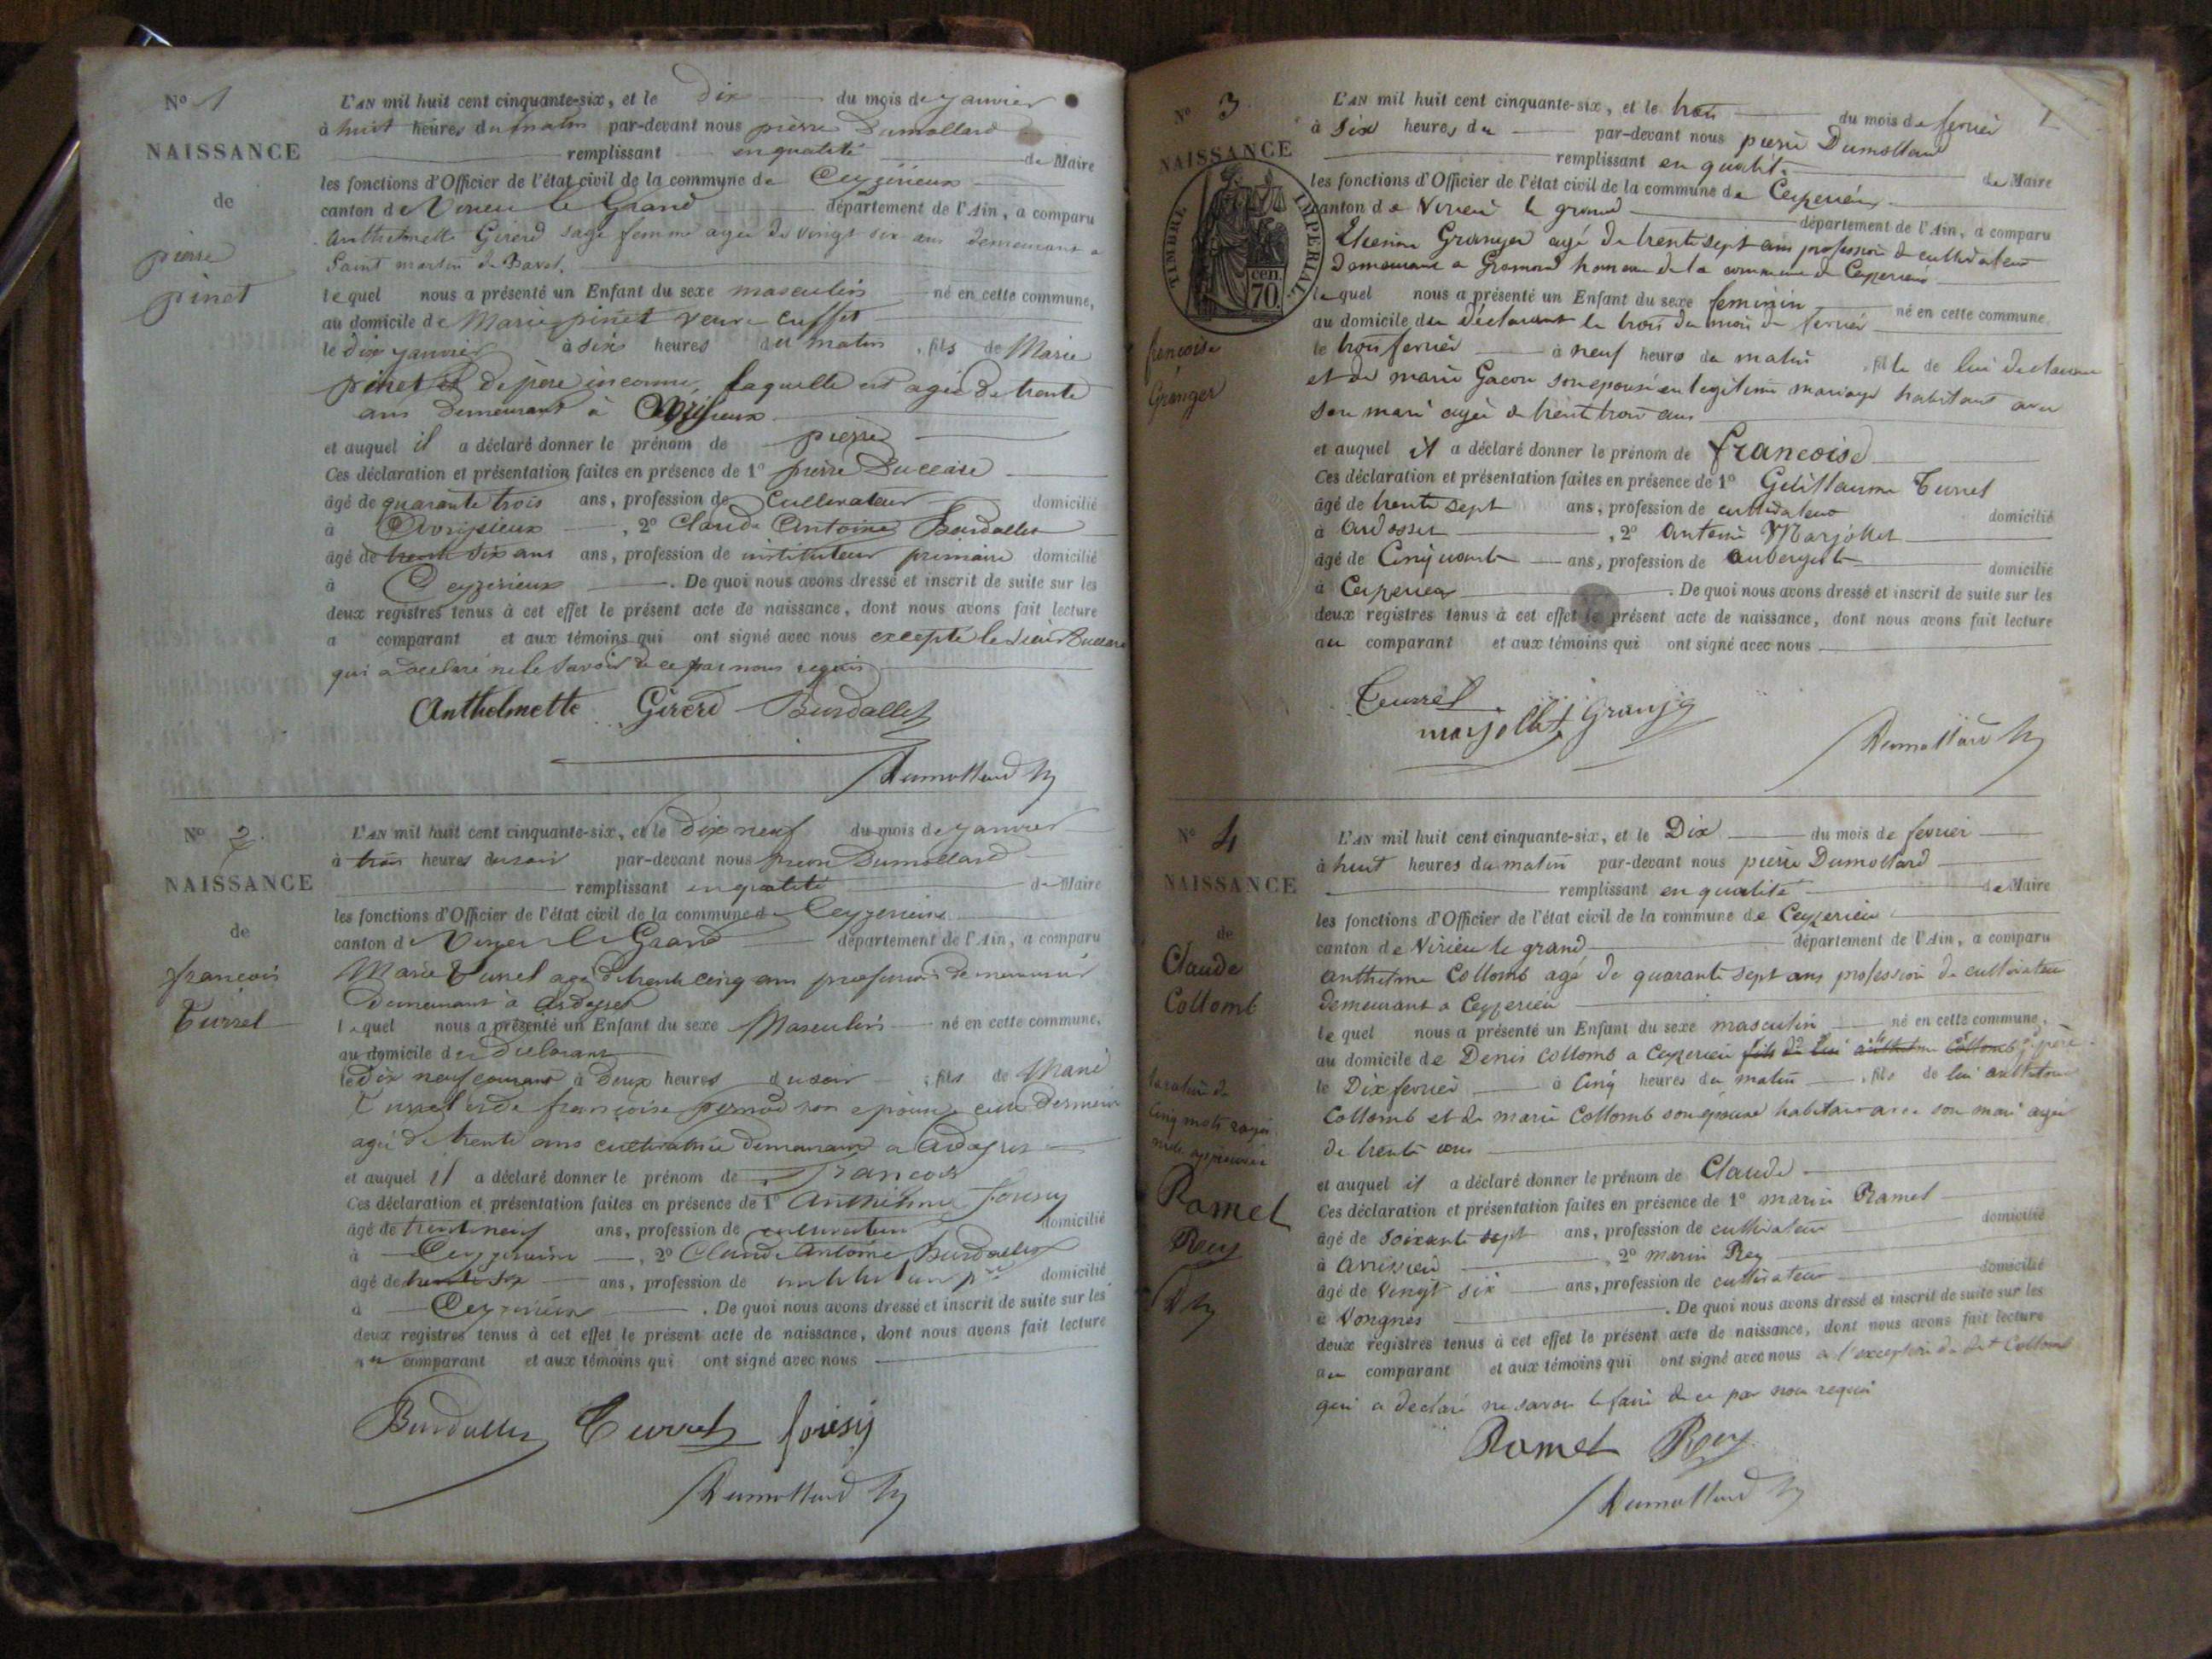 N° 1
NAISSANCE
de
pierre
pinet
L'AN mil huit cent cinquante-six, et le dix du mois de janvier
à huit heures du matin par-devant nous pierre Dumollard
remplissant en qualité de Maire
les fonctions d'Officier de l'état civil de la commune de Ceyzérieux
canton de Virieu le Grand département de l'Ain, a comparu
Anthelmette Girerd sage femme agée de vingt six ans demeurant a
Saint martin de Bavel.
lequel nous a présenté un Enfant du sexe masculin né en cette commune,
au domicile de Marie pinet veuve
le dix janvier à six heures du matin, fils de Marie
pinet et de père inconnu, laquelle est agée de trente
ans demeurant à
et auquel il a déclaré donner le prénom de pierre
Ces déclaration et présentation faites en présence de 1° pierre
âgé de quarante trois ans, profession de Cultivateur domicilié
à Avrissieux, 2° Claude Antoine Burdallet
âgé de trente six ans ans, profession de instituteur primaire domicilié
à Ceyzerieux. De quoi nous avons dressé et inscrit de suite sur les
deux registres tenus à cet effet le présent acte de naissance, dont nous avons fait lecture
a comparant et aux témoins qui ont signé avec nous excepté le sieur
qui a declaré ne le savoir de ce par nous requis
Anthelmette Girerd Burdallet
Dumollard
N° 2.
NAISSANCE
de
francois
Turrel
L'AN mil huit cent cinquante-six, et le dix neuf du mois de janvier
à trois heures du soir par-devant nous pierre Dumollard
remplissant en qualité de Maire
les fonctions d'Officier de l'état civil de la commune de Ceyzerieux
canton de Virieu le Grand département de l'Ain, a comparu
Turrel agé de trente cinq ans profession de menuisier
demeurant à Ardosset
lequel nous a présenté un Enfant du sexe Masculin né en cette commune,
au domicile du déclarant
le dix neuf courant à deux heures du soir, fils de
Turrel et de françoise son epouse cette derniere
agée de trente ans cultivatrice demeurant a Ardosset
et auquel il a déclaré donner le prénom de francois
Ces déclaration et présentation faites en présence de 1° Anthelme
âgé de trente neuf ans, profession de cultivateur domicilié
à Ceyzerieux, 2° Claude Antoine Burdallet
âgé de trente six ans, profession de instituteur pre domicilié
à Ceyzerieux. De quoi nous avons dressé et inscrit de suite sur les
deux registres tenus à cet effet le présent acte de naissance, dont nous avons fait lecture
au comparant et aux témoins qui ont signé avec nous
Burdallet Turrel
Dumollard
N° 3.
NAISSANCE
TIMBRE IMPERIAL
70 cen.
francoise
Granger
L'AN mil huit cent cinquante-six, et le trois du mois de fevrier
à six heures du par-devant nous pierre Dumollard
remplissant en qualité de Maire
les fonctions d'Officier de l'état civil de la commune de Ceyzerieu
canton de Virieu le grand département de l'Ain, a comparu
Etienne Granger agé de trente sept ans profession de cultivateur
demeurant a hameau de la commune de Ceyzerieu
lequel nous a présenté un Enfant du sexe feminin né en cette commune
au domicile du déclarant le trois du mois de fevrier
le trois fevrier à neuf heures du matin, fille de lui declarant
et de marie Gacon son epouse en legitime mariage habitant avec
son mari agée de trente trois ans
et auquel il a déclaré donner le prénom de francoise
Ces déclaration et présentation faites en présence de 1° Guillaume Turrel
âgé de trente sept ans, profession de cultivateur domicilié
à Ardosset, 2° Antoine Marjollet
âgé de Cinquante ans, profession de aubergiste domicilié
à Ceyzerieu. De quoi nous avons dressé et inscrit de suite sur les
deux registres tenus à cet effet le présent acte de naissance, dont nous avons fait lecture
au comparant et aux témoins qui ont signé avec nous
Teurrel
marjollet
Dumollard
N° 4
NAISSANCE
de
Claude
Collomb
cinq mots rayés
Ramel
Rey
L'AN mil huit cent cinquante-six, et le Dix du mois de fevrier
à huit heures du matin par-devant nous pierre Dumollard
remplissant en qualité de Maire
les fonctions d'Officier de l'état civil de la commune de Ceyzerieu
canton de Virieu le grand département de l'Ain, a comparu
anthelme Collomb agé de quarante sept ans profession de cultivateur
demeurant a Ceyzerieu
lequel nous a présenté un Enfant du sexe masculin né en cette commune,
au domicile de Denis Collomb a Ceyzerieu fils de lui anthelme Collomb
le Dix fevrier à Cinq heures du matin, fils de lui anthelme
Collomb et de marie Collomb son épouse habitant avec son mari agée
de trente ans
et auquel il a déclaré donner le prénom de Claude
Ces déclaration et présentation faites en présence de 1° marin Ramel
âgé de Soixante sept ans, profession de cultivateur domicilié
à, 2° marin Rey
âgé de Vingt six ans, profession de cultivateur domicilié
à Vongnes. De quoi nous avons dressé et inscrit de suite sur les
deux registres tenus à cet effet le présent acte de naissance, dont nous avons fait lecture
au comparant et aux témoins qui ont signé avec nous a l'exception du dit Collomb
qui a declaré ne savoir le faire de ce par nous requis
Ramel Rey
Dumollard